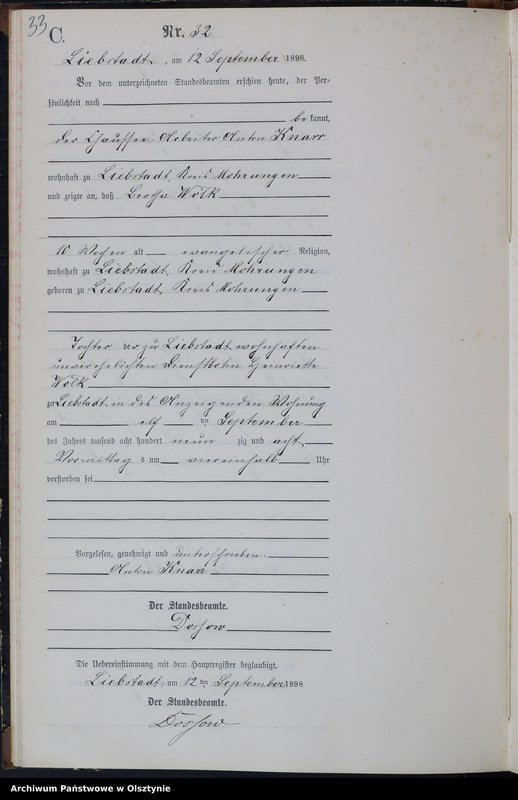 33
C.
Nr. 32
Liebstadt, am 12 September 1898.
Vor dem unterzeichneten Standesbeamten erschien heute, der Per-
sönlichkeit nach
bekannt,
der Chaussee Arbeiter Anton Knarr
wohnhaft zu Liebstadt, Kreis Mohrungen
und zeigte an, daß Bertha Wölk
10 Wochen alt evangelischer Religion,
wohnhaft zu Liebstadt, Kreis Mohrungen
geboren zu Liebstadt, Kreis Mohrungen
Tochter der zu Liebstadt wohnhaften
unverehelichten Dienstboten Henriette
Wölk
zu Liebstadt in des Anzeigenden Wohnung
am elf ten September
des Jahres tausend acht hundert neun zig und acht
Vormittag s um viereinhalb Uhr
verstorben sei
Vorgelesen, genehmigt und unterschrieben.
Anton Knarr
Der Standesbeamte.
Dossow
Die Uebereinstimmung mit dem Hauptregister beglaubigt.
Liebstadt, am 12 ten September 1898
Der Standesbeamte.
Dossow
Archiwum Państwowe w Olsztynie